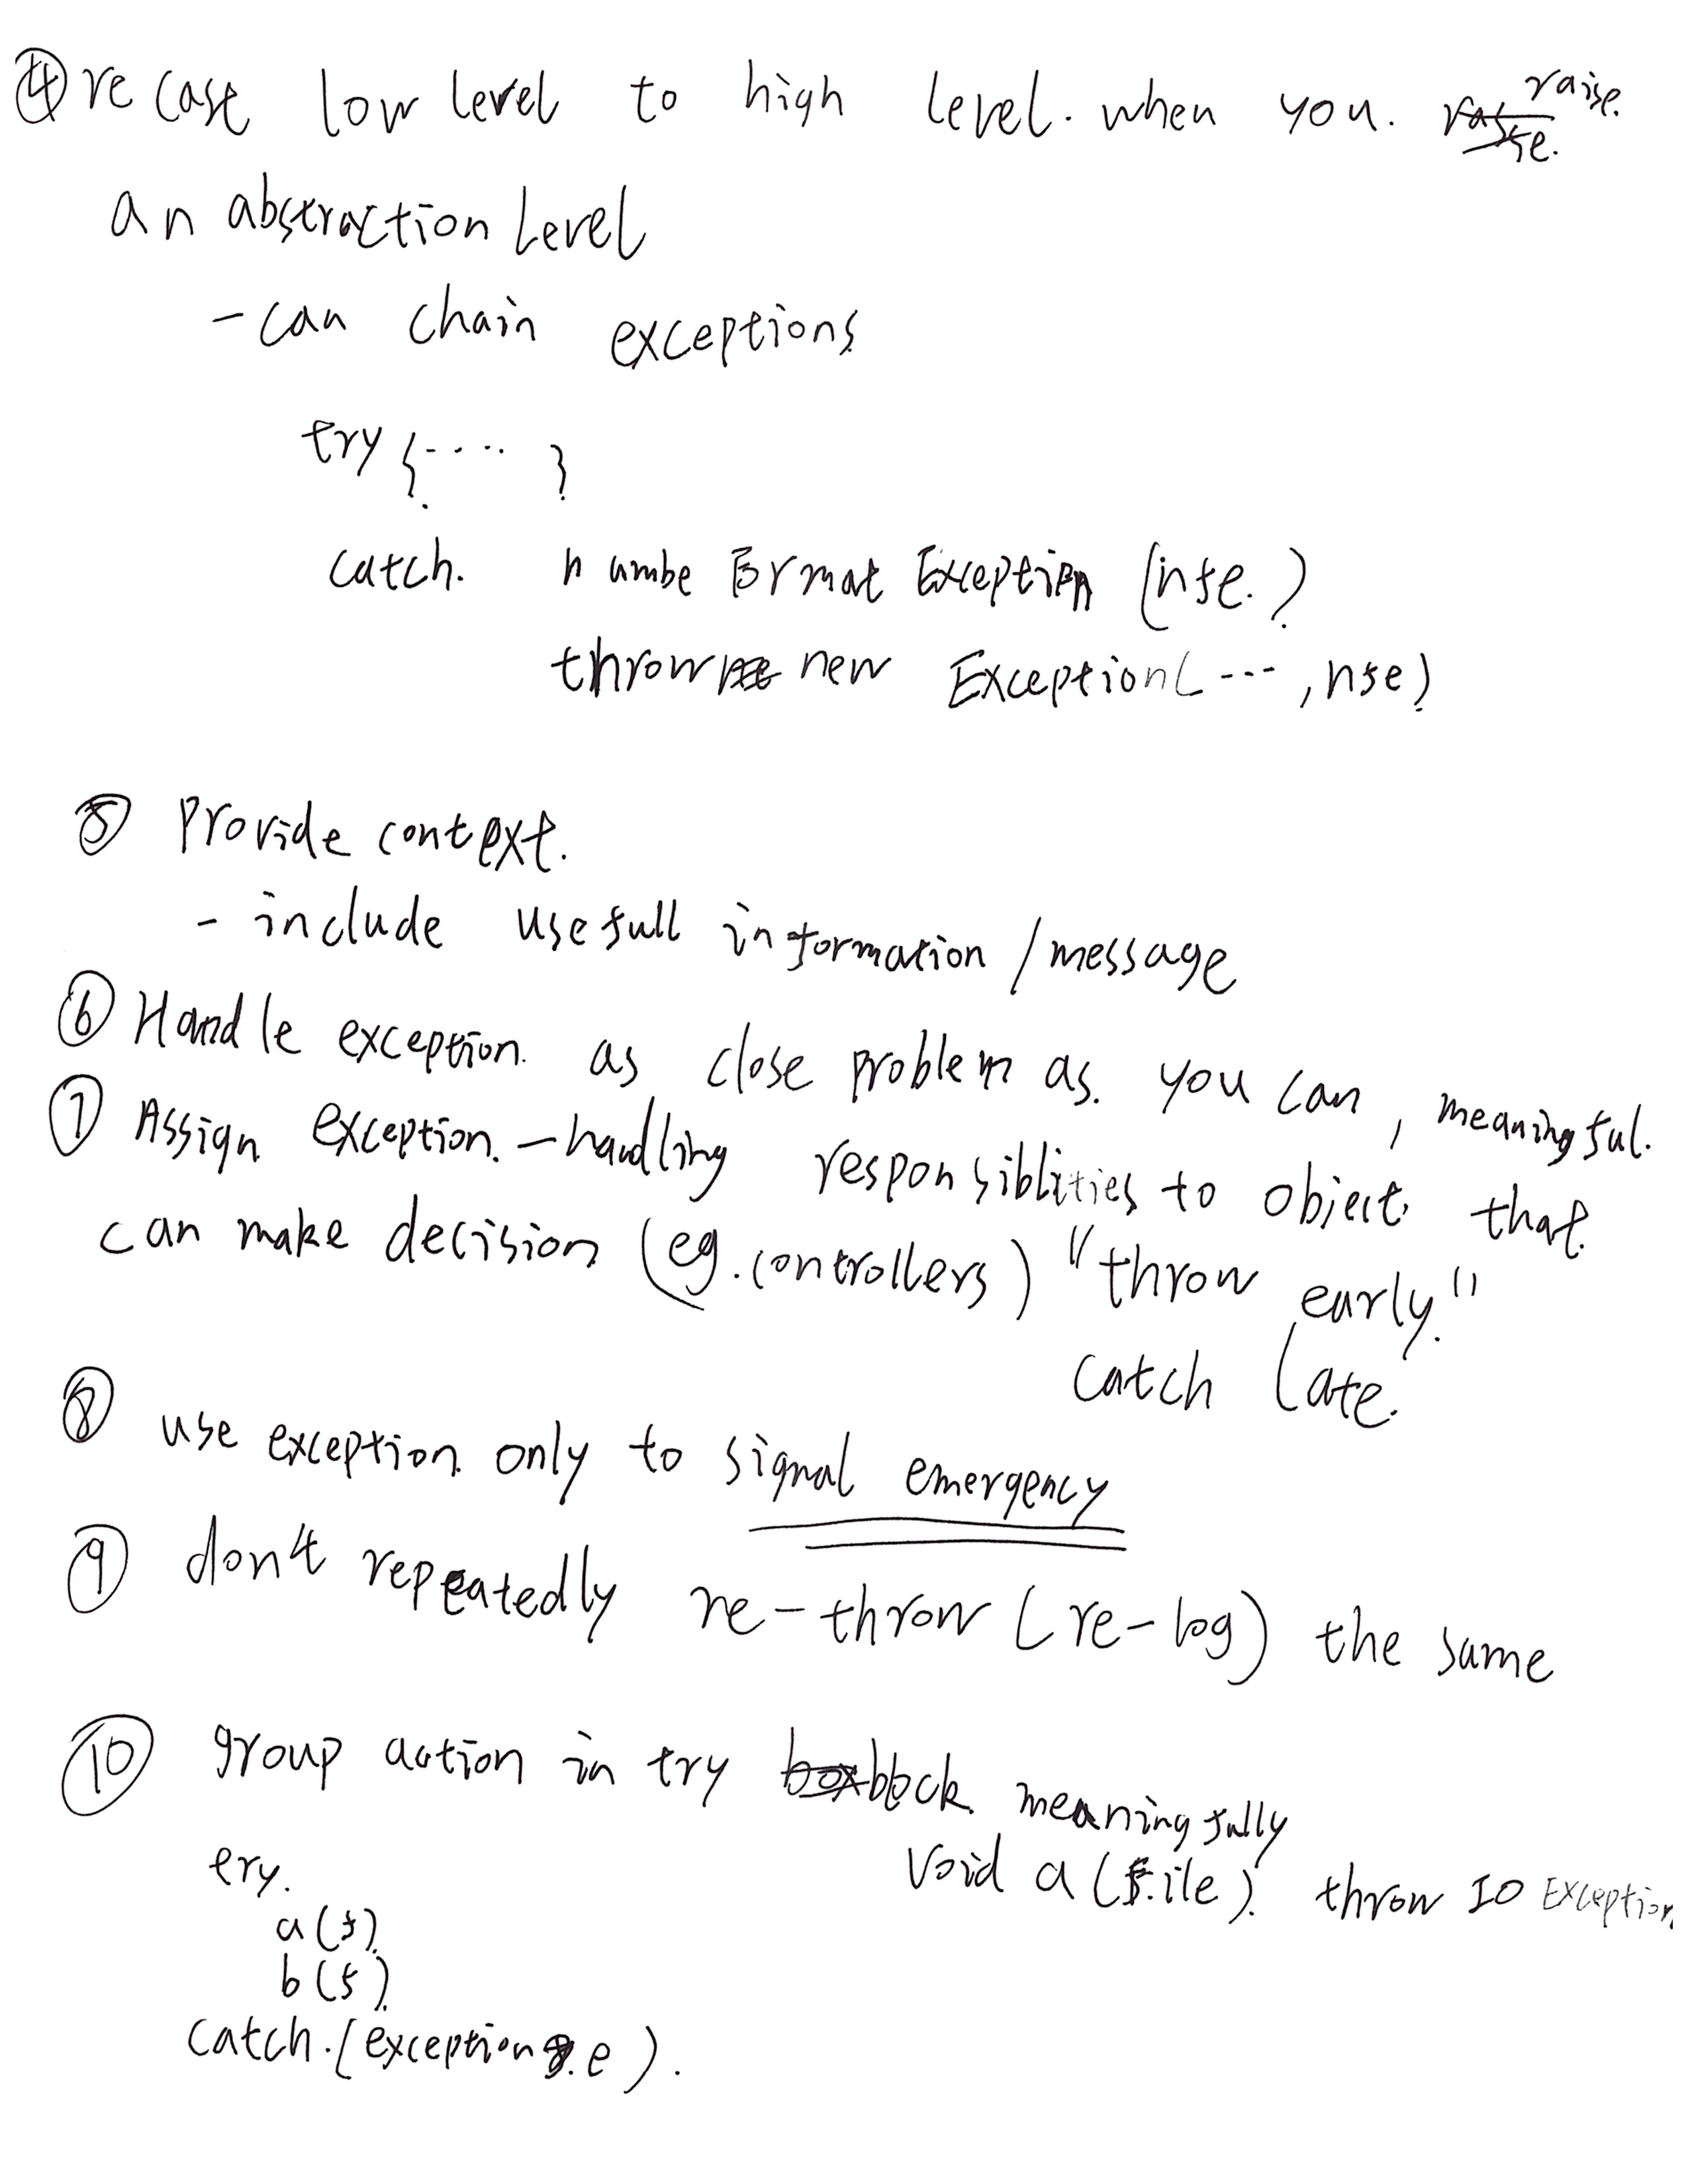 ④ recast low level to high level. when you. raise.
an abstraction level
- can chain exceptions
try {.... }
catch. numbe Format Exception (nfe.)
throw new Exception( ---, nfe)
⑤ Provide context.
- include usefull information / message
⑥ Handle exception. as close problem as. you can, meaningful.
⑦ Assign exception. - handling responsiblities to object. that.
can make decision (eg. controllers) "throw early."
catch late.
⑧ use exception only to signal emergency
⑨ don't repeatedly re-throw (re-log) the same
⑩ group action in try block. meaningfully
void a (file). throw IO Exception
try.
a (f)
b (f)
catch. (exception e).